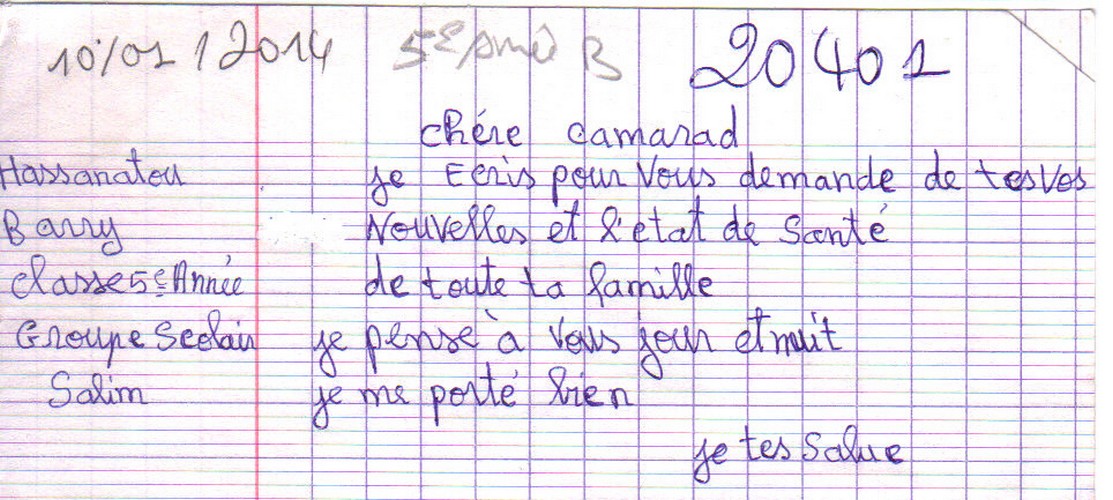 10/01/2014 5e B 20401
chére camarad
Hassanatou je Ecris pour Vous demande de tes Vos
Barry Nouvelles et l'etat de Santé
classe 5e Année de toute ta famille
Groupe Scolair je pense à Vous jour et nuit
Salim je me porte bien
je tes Salue